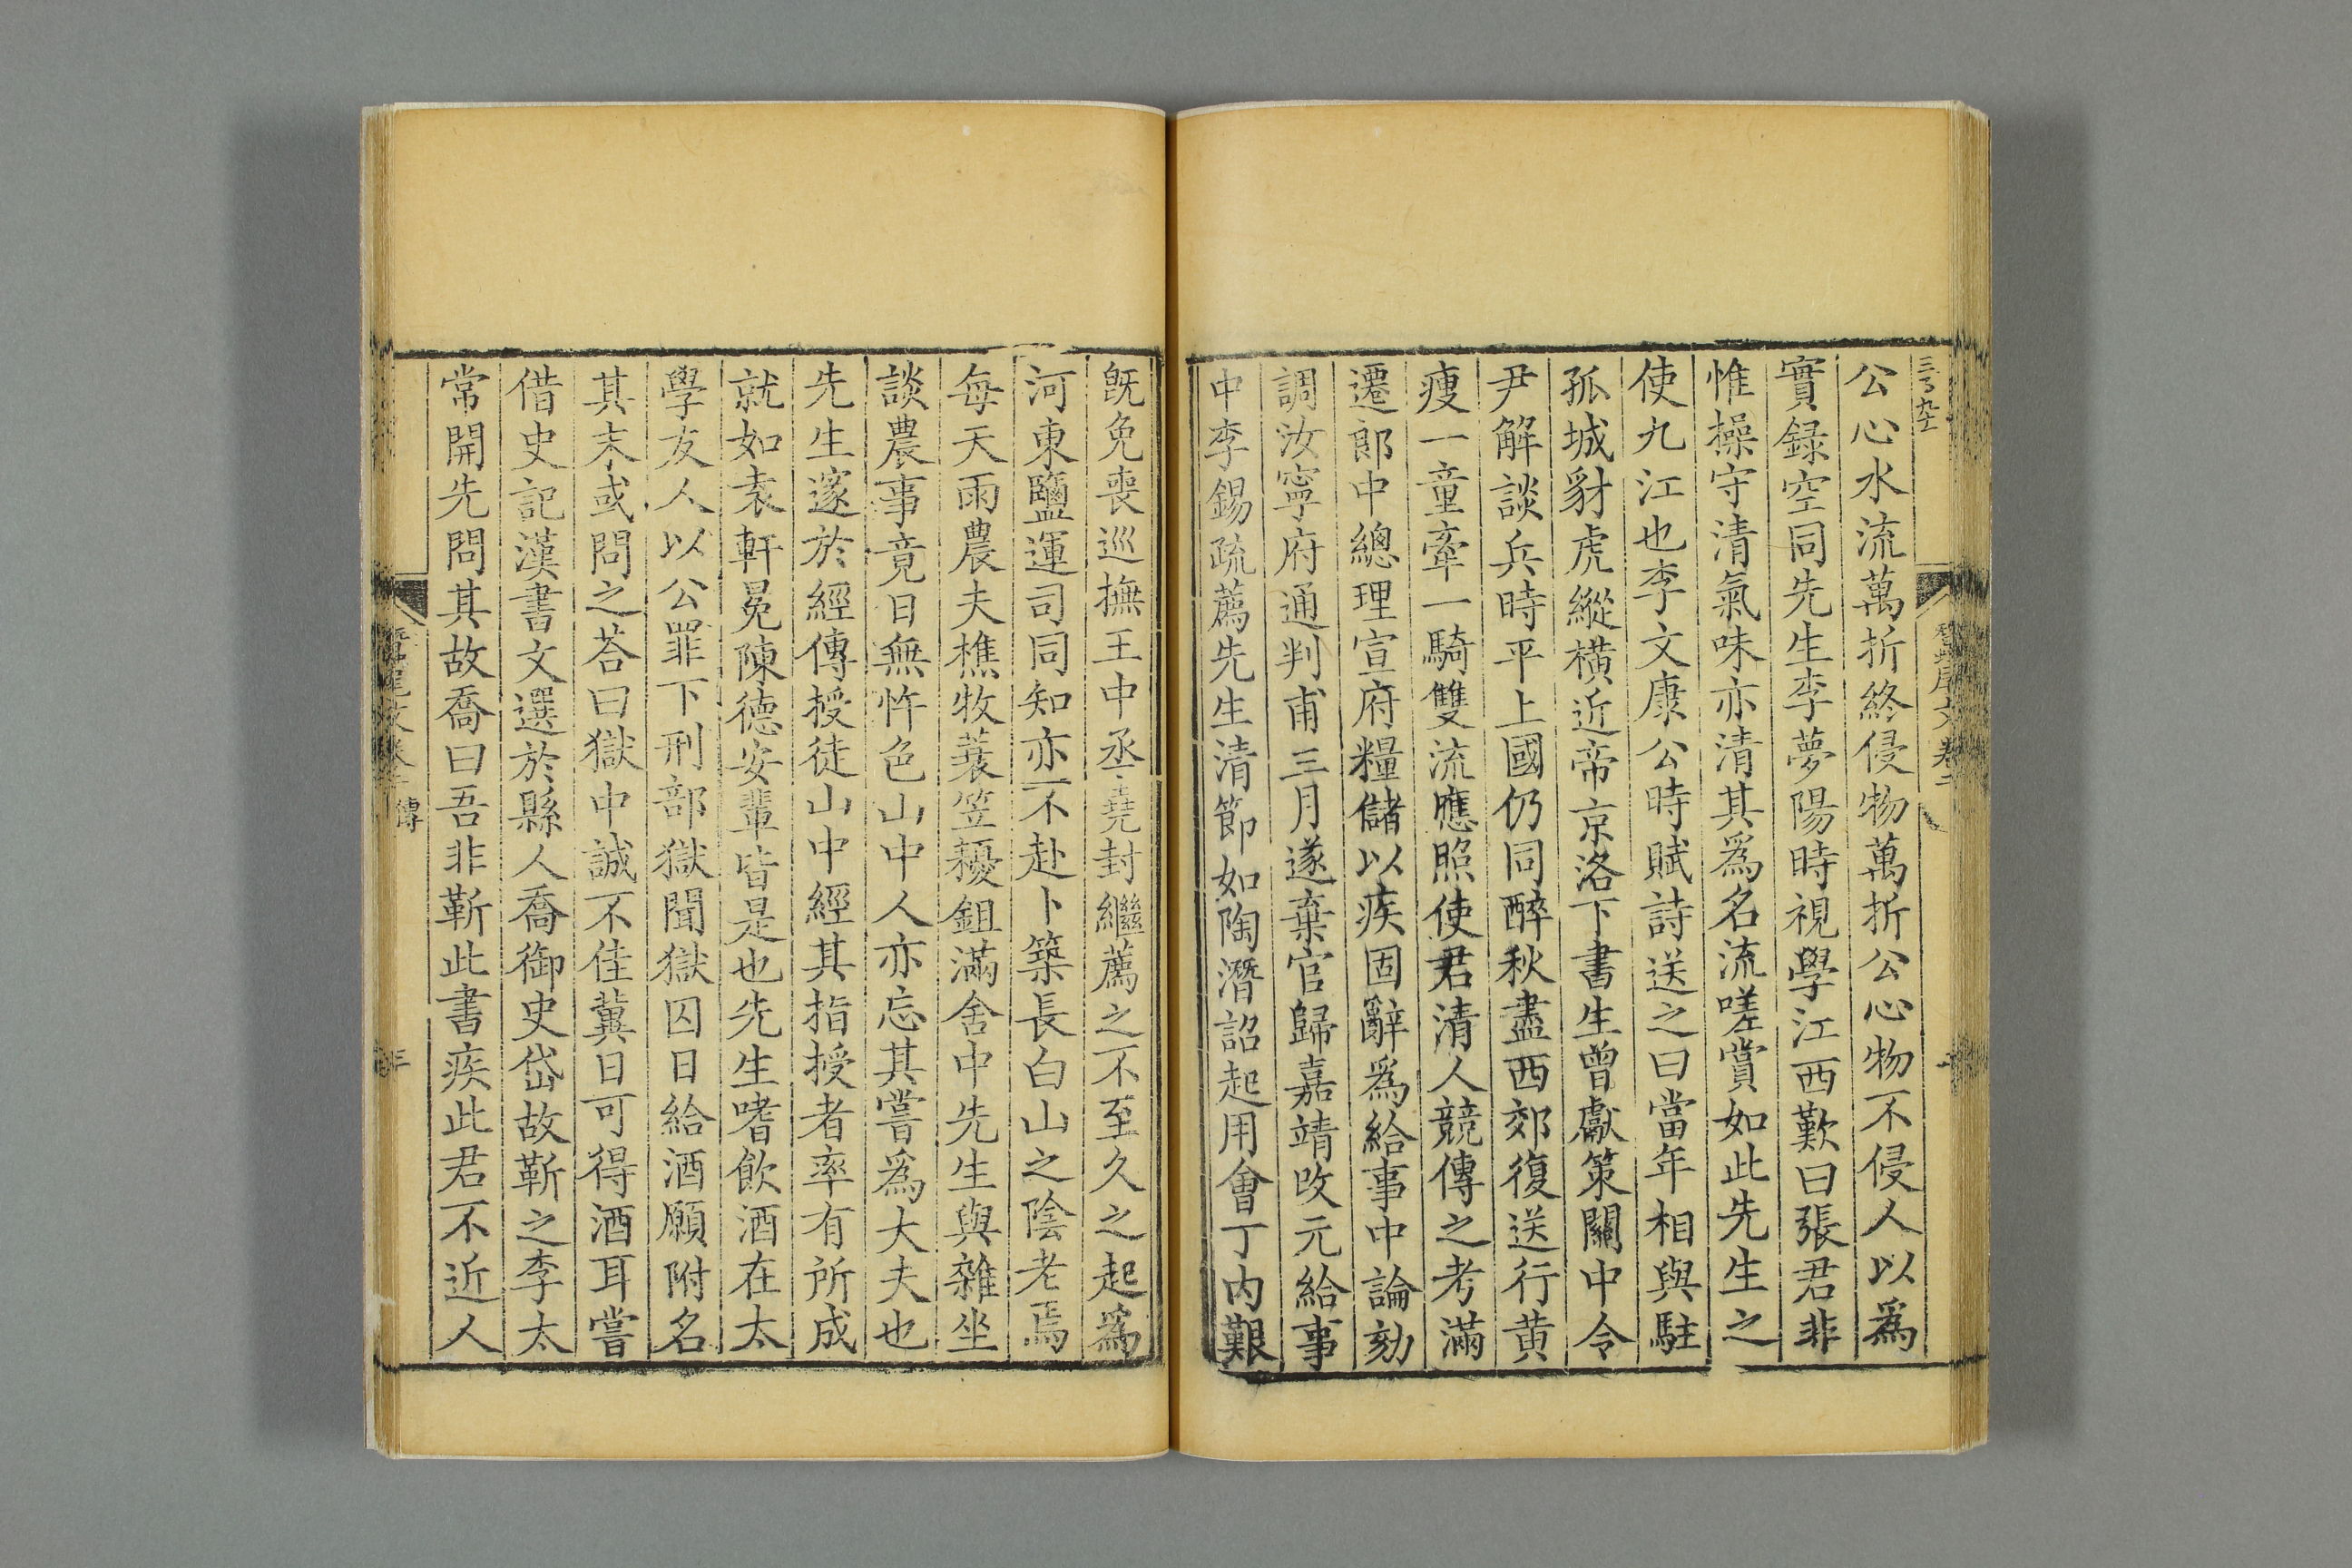 公心水流萬折終侵物萬折公心物不侵人以爲
實録空同先生李夢陽時視學江西歎曰張君非
惟操守清氣味亦清其爲名流嗟賞如此先生之
使九江也李文康公時賦詩送之曰當年相與駐
孤城豺虎縱橫近帝京洛下書生曾獻策關中令
尹解談兵時平上國仍同醉秋盡西郊復送行黄
瘦一童牽一騎雙流應照使君清人競傳之考滿
遷郎中總理宣府糧儲以疾固辭爲給事中論劾
調汝寧府通判甫三月遂棄官歸嘉靖改元給事
中李錫疏薦先生清節如陶潛詔起用會丁内艱
既免喪巡撫王中丞堯封繼薦之不至久之起爲
河東鹽運司同知亦不赴卜築長白山之陰老焉
每天雨農夫樵牧蓑笠耰鉏滿舍中先生與雜坐
談農事竟日無忤色山中人亦忘其嘗爲大夫也
先生邃於經傳授徒山中經其指授者率有所成
就如袁軒冕陳德安輩皆是也先生嗜飲酒在太
學友人以公罪下刑部獄聞獄囚日給酒願附名
其末或問之荅曰獄中誠不佳冀日可得酒耳嘗
借史記漢書文選於縣人喬御史岱故靳之李太
常開先問其故喬曰吾非靳此書疾此君不近人
傳